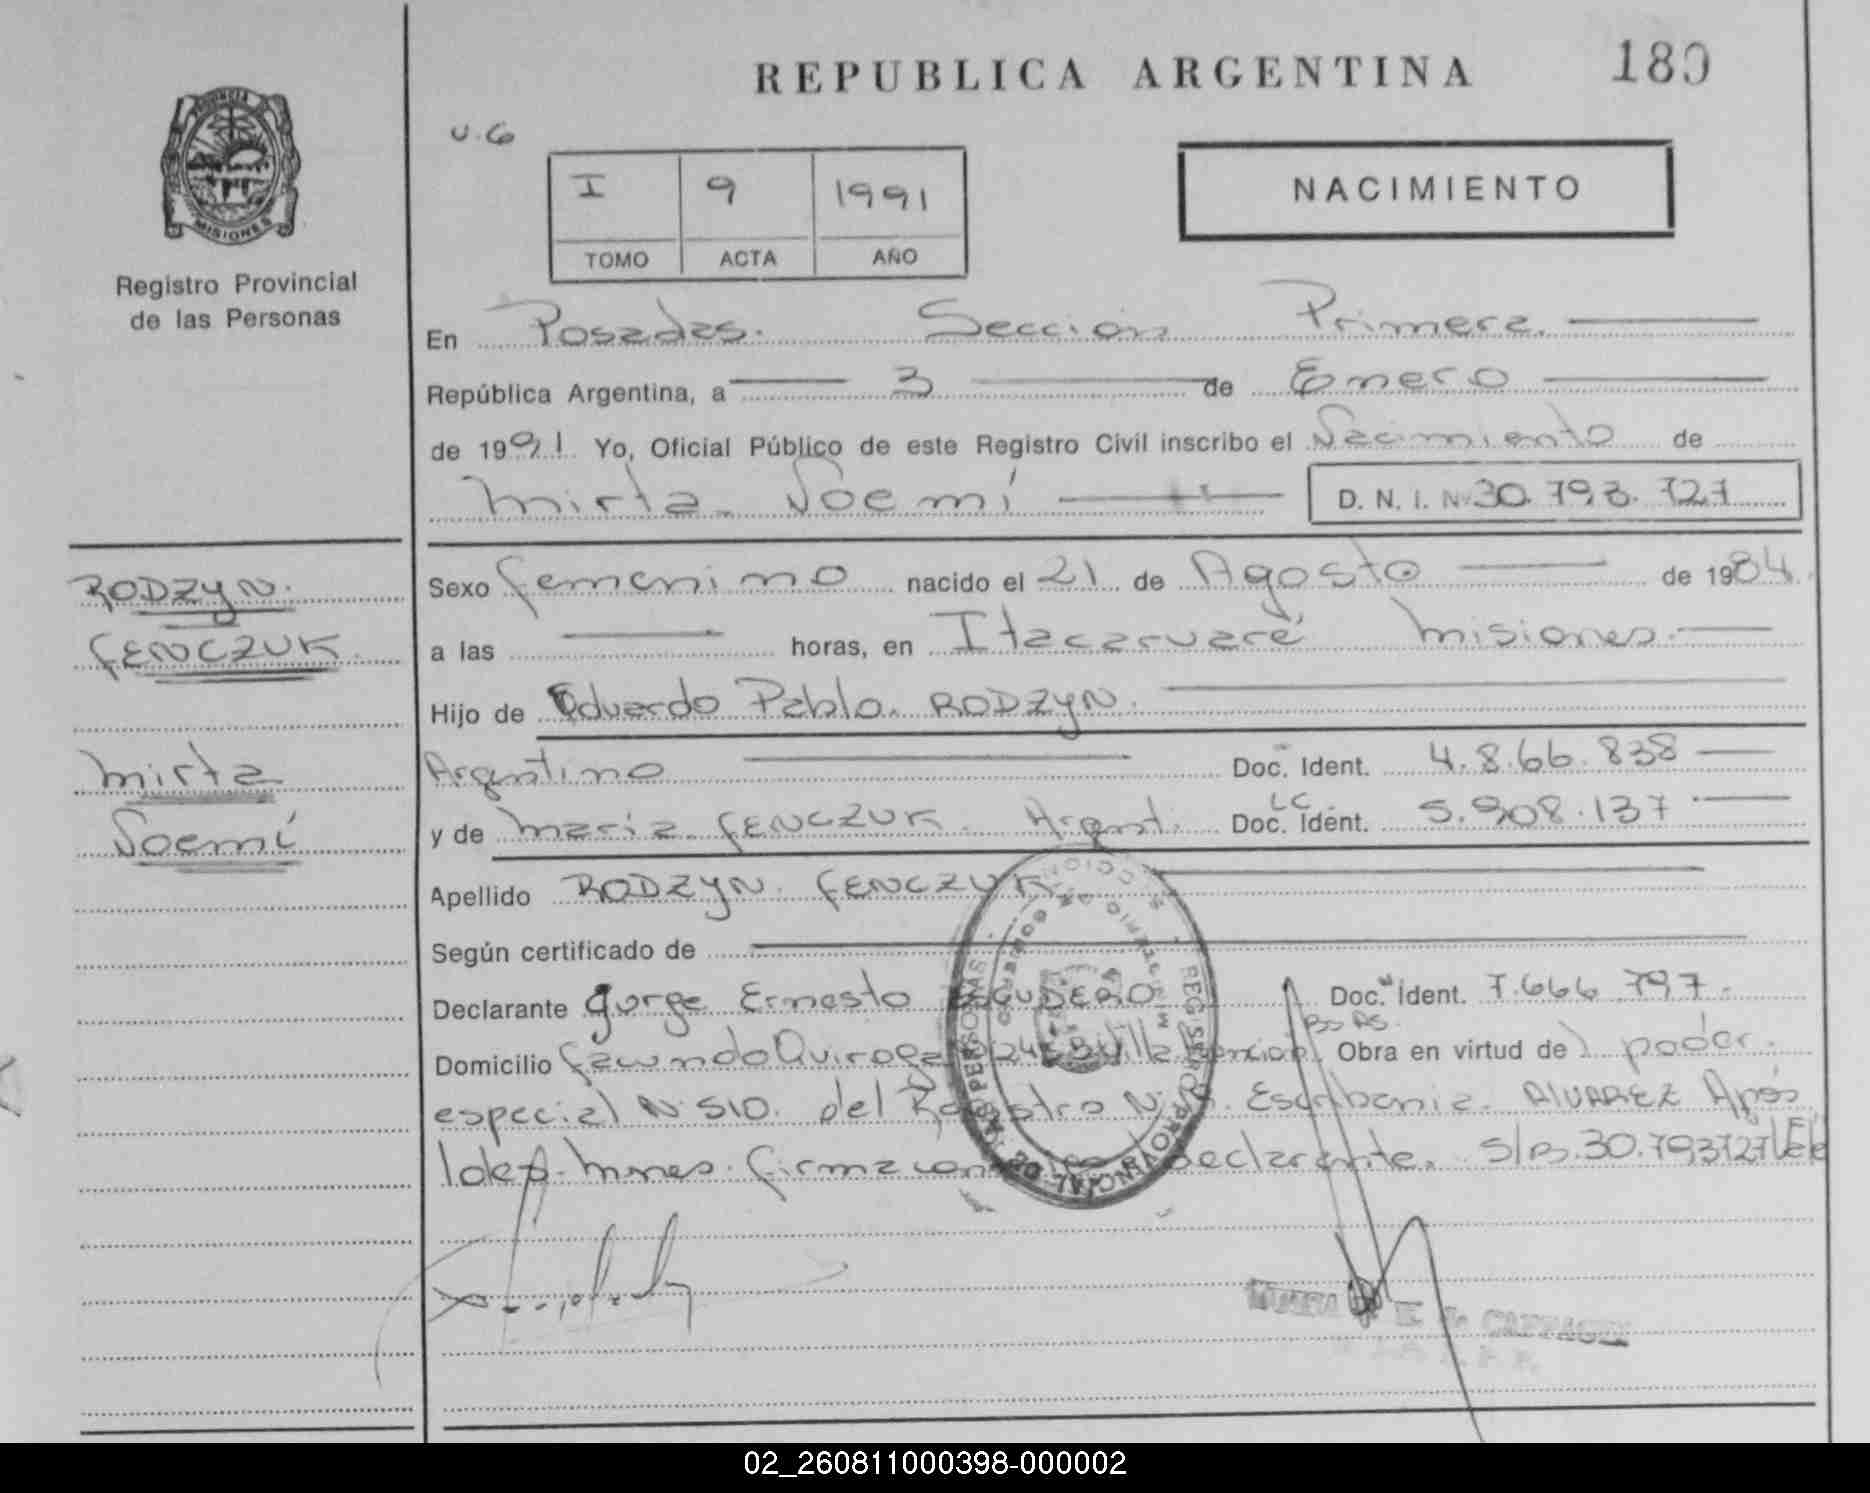 REPUBLICA ARGENTINA
180
PROVINCIA
MISIONES
Registro Provincial
de las Personas
U.G
I 9 1991
TOMO ACTA AÑO
NACIMIENTO
En Posadas. Seccion Primera.
República Argentina, a 3 de Enero
de 1991. Yo, Oficial Público de este Registro Civil inscribo el Nacimiento de
Mirta Noemí D. N. I. Nº 30.793.727
RODZYN.
FENCZUK.
Mirta
Noemí
Sexo femenino nacido el 21 de Agosto de 1984.
a las horas, en Itacaruaré Misiones.
Hijo de Eduardo Pablo. RODZYN.
Argentino Doc. Ident. 4.8.66.838
y de Maria FENCZUK. Argent. LC Doc. Ident. 5.908.137
Apellido RODZYN. FENCZUK
Según certificado de
Declarante Jorge Ernesto ESCUDERO Doc. Ident. 7.666.797.
Domicilio Facundo Quiroga Bs As. Obra en virtud de poder
especial N. 510. del Registro N. Escribania. ALVAREZ Após
Mnes. firma declarante. S/B. 30.793727
REGISTRO PROVINCIAL DE LAS PERSONAS
02_260811000398-000002